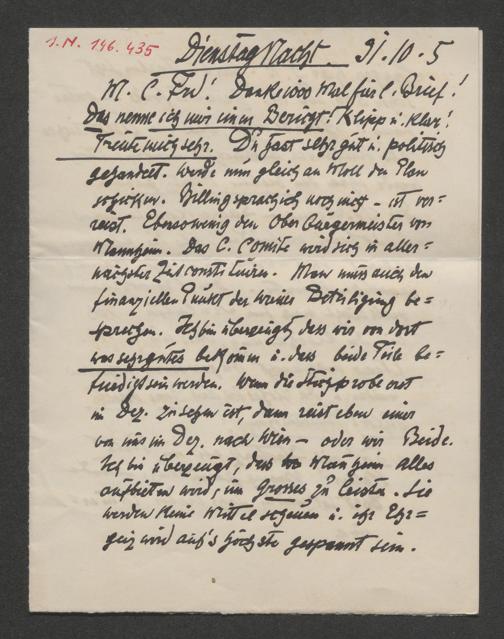 I.N. 196.435
Dienstag Nacht. 31.10.5
M. C. Frd! Danke 1000 Mal für l. Brief!
Das nenne ich mir einen Bericht! Klipp u. klar!
Freute mich sehr. Du hast sehr gut u. politisch
gehandelt. Werde nun gleich an Moll den Plan
schicken. Billing sprach ich noch nicht – ist ver=
reist. Ebensowenig den Oberbürgermeister von
Mannheim. Das C. Comité wird sich in aller=
nächster Zeit constituiren. Man muss auch den
finanziellen Punkt der Wiener Beteiligung be=
sprechen. Ich bin überzeugt, dass wir von dort
was sehr gutes bekommen u. dass beide Teile be=
friedigt sein werden. Wenn die Stoffprobe erst
im Dez. zu sehen ist, dann reist eben einer
von uns im Dez. nach Wien – oder wir Beide.
Ich bin überzeugt, dass Mannheim alles
aufbieten wird, um Grosses zu leisten. Sie
werden keine Mittel scheuen u. ihr Ehr=
geiz wird auf's höchste gespannt sein.